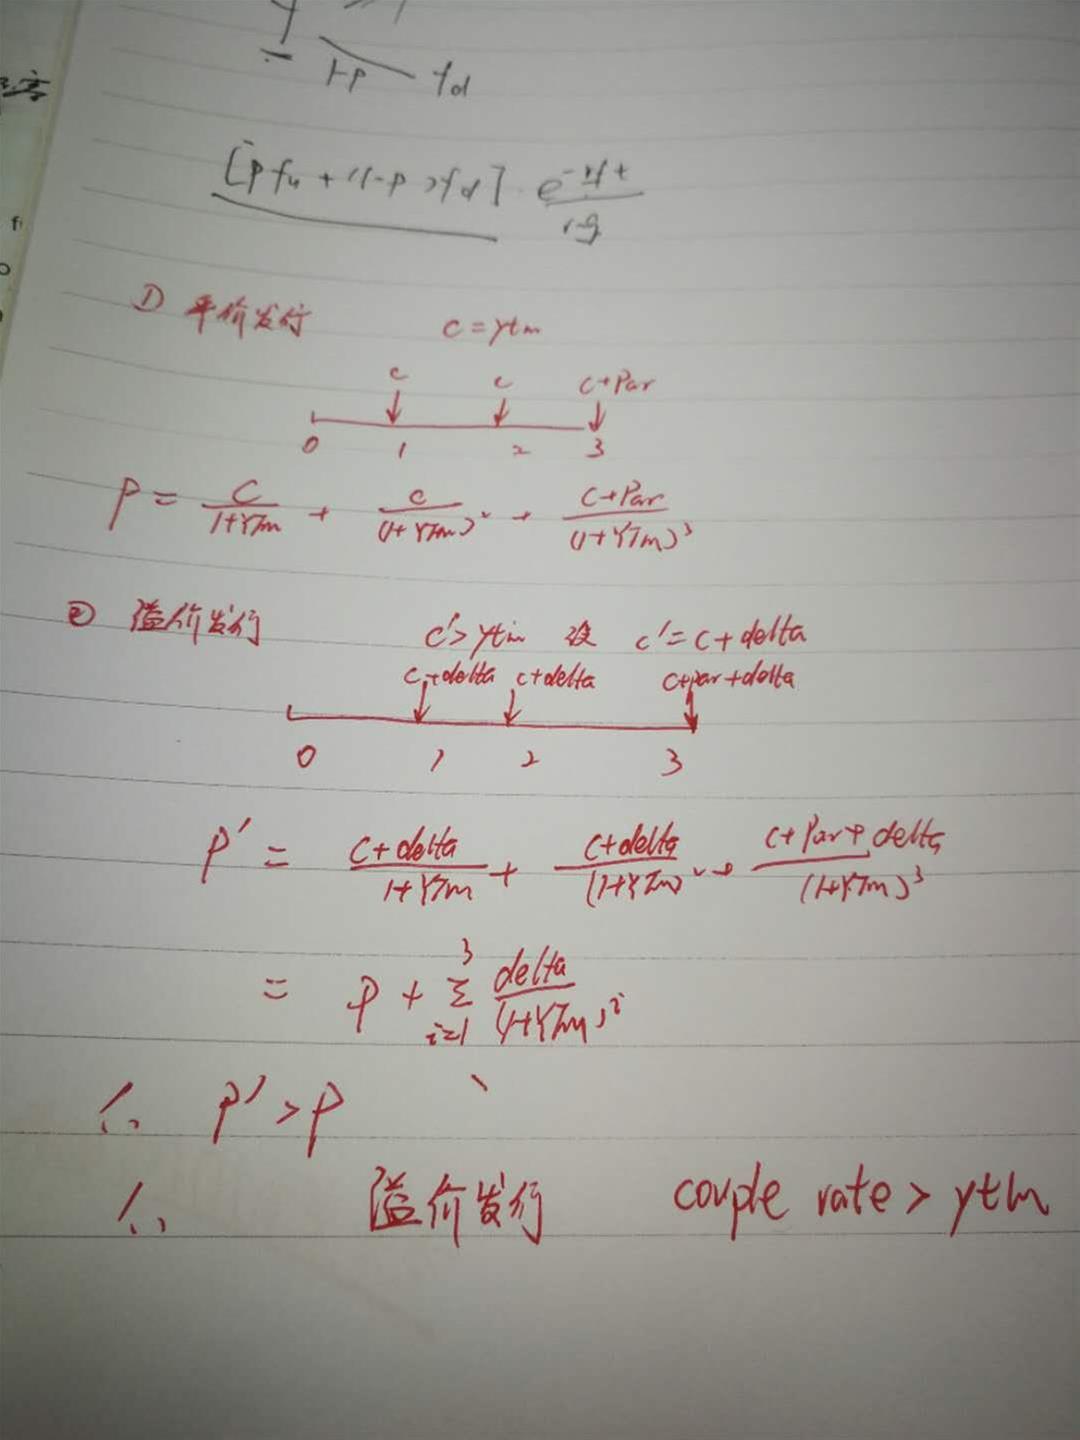 1-p fd
[pfu + (1-p)fd] · e^-rf t
r-g
① 平价发行 c = ytm
c c c+Par
0 1 2 3
P = C/(1+YTm) + c/(1+YTm)² + (C+Par)/(1+YTm)³
② 溢价发行 c'> ytm 设 c' = c + delta
c+delta c+delta c+par+delta
0 1 2 3
P' = (C+delta)/(1+YTm) + (C+delta)/(1+YTm)² + (C+Par+delta)/(1+YTm)³
= P + Σ_{i=1}^{3} delta/(1+YTm)^i
∴ P' > P
∴ 溢价发行 couple rate > ytm